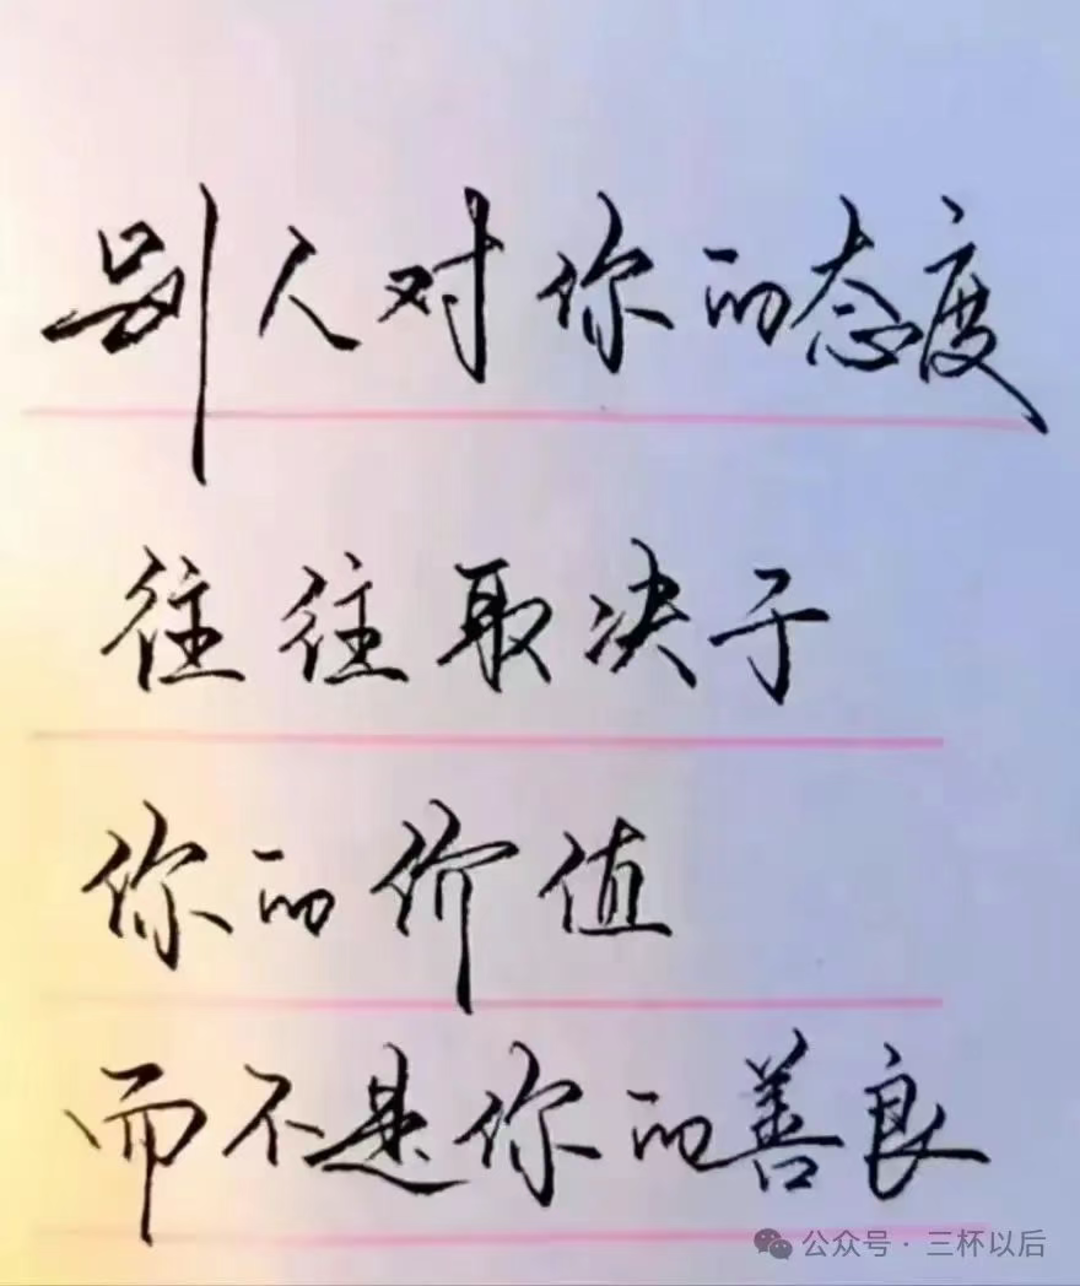 别人对你的态度
往往取决于
你的价值
而不是你的善良
公众号 · 三杯以后